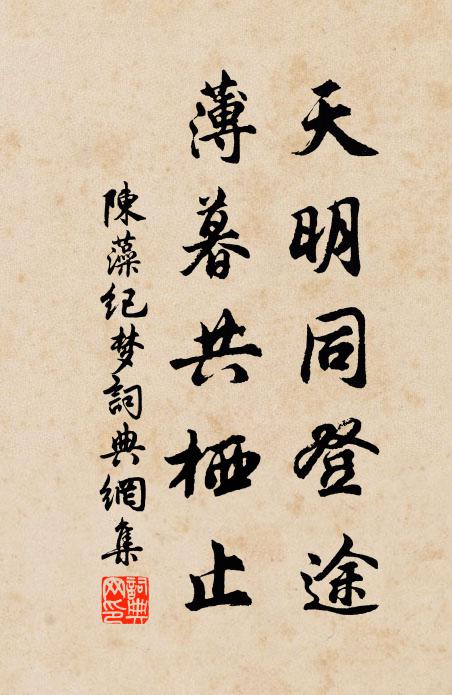 天明同登途
薄暮共栖止
陳藻纪梦詞典網集
詞典网印